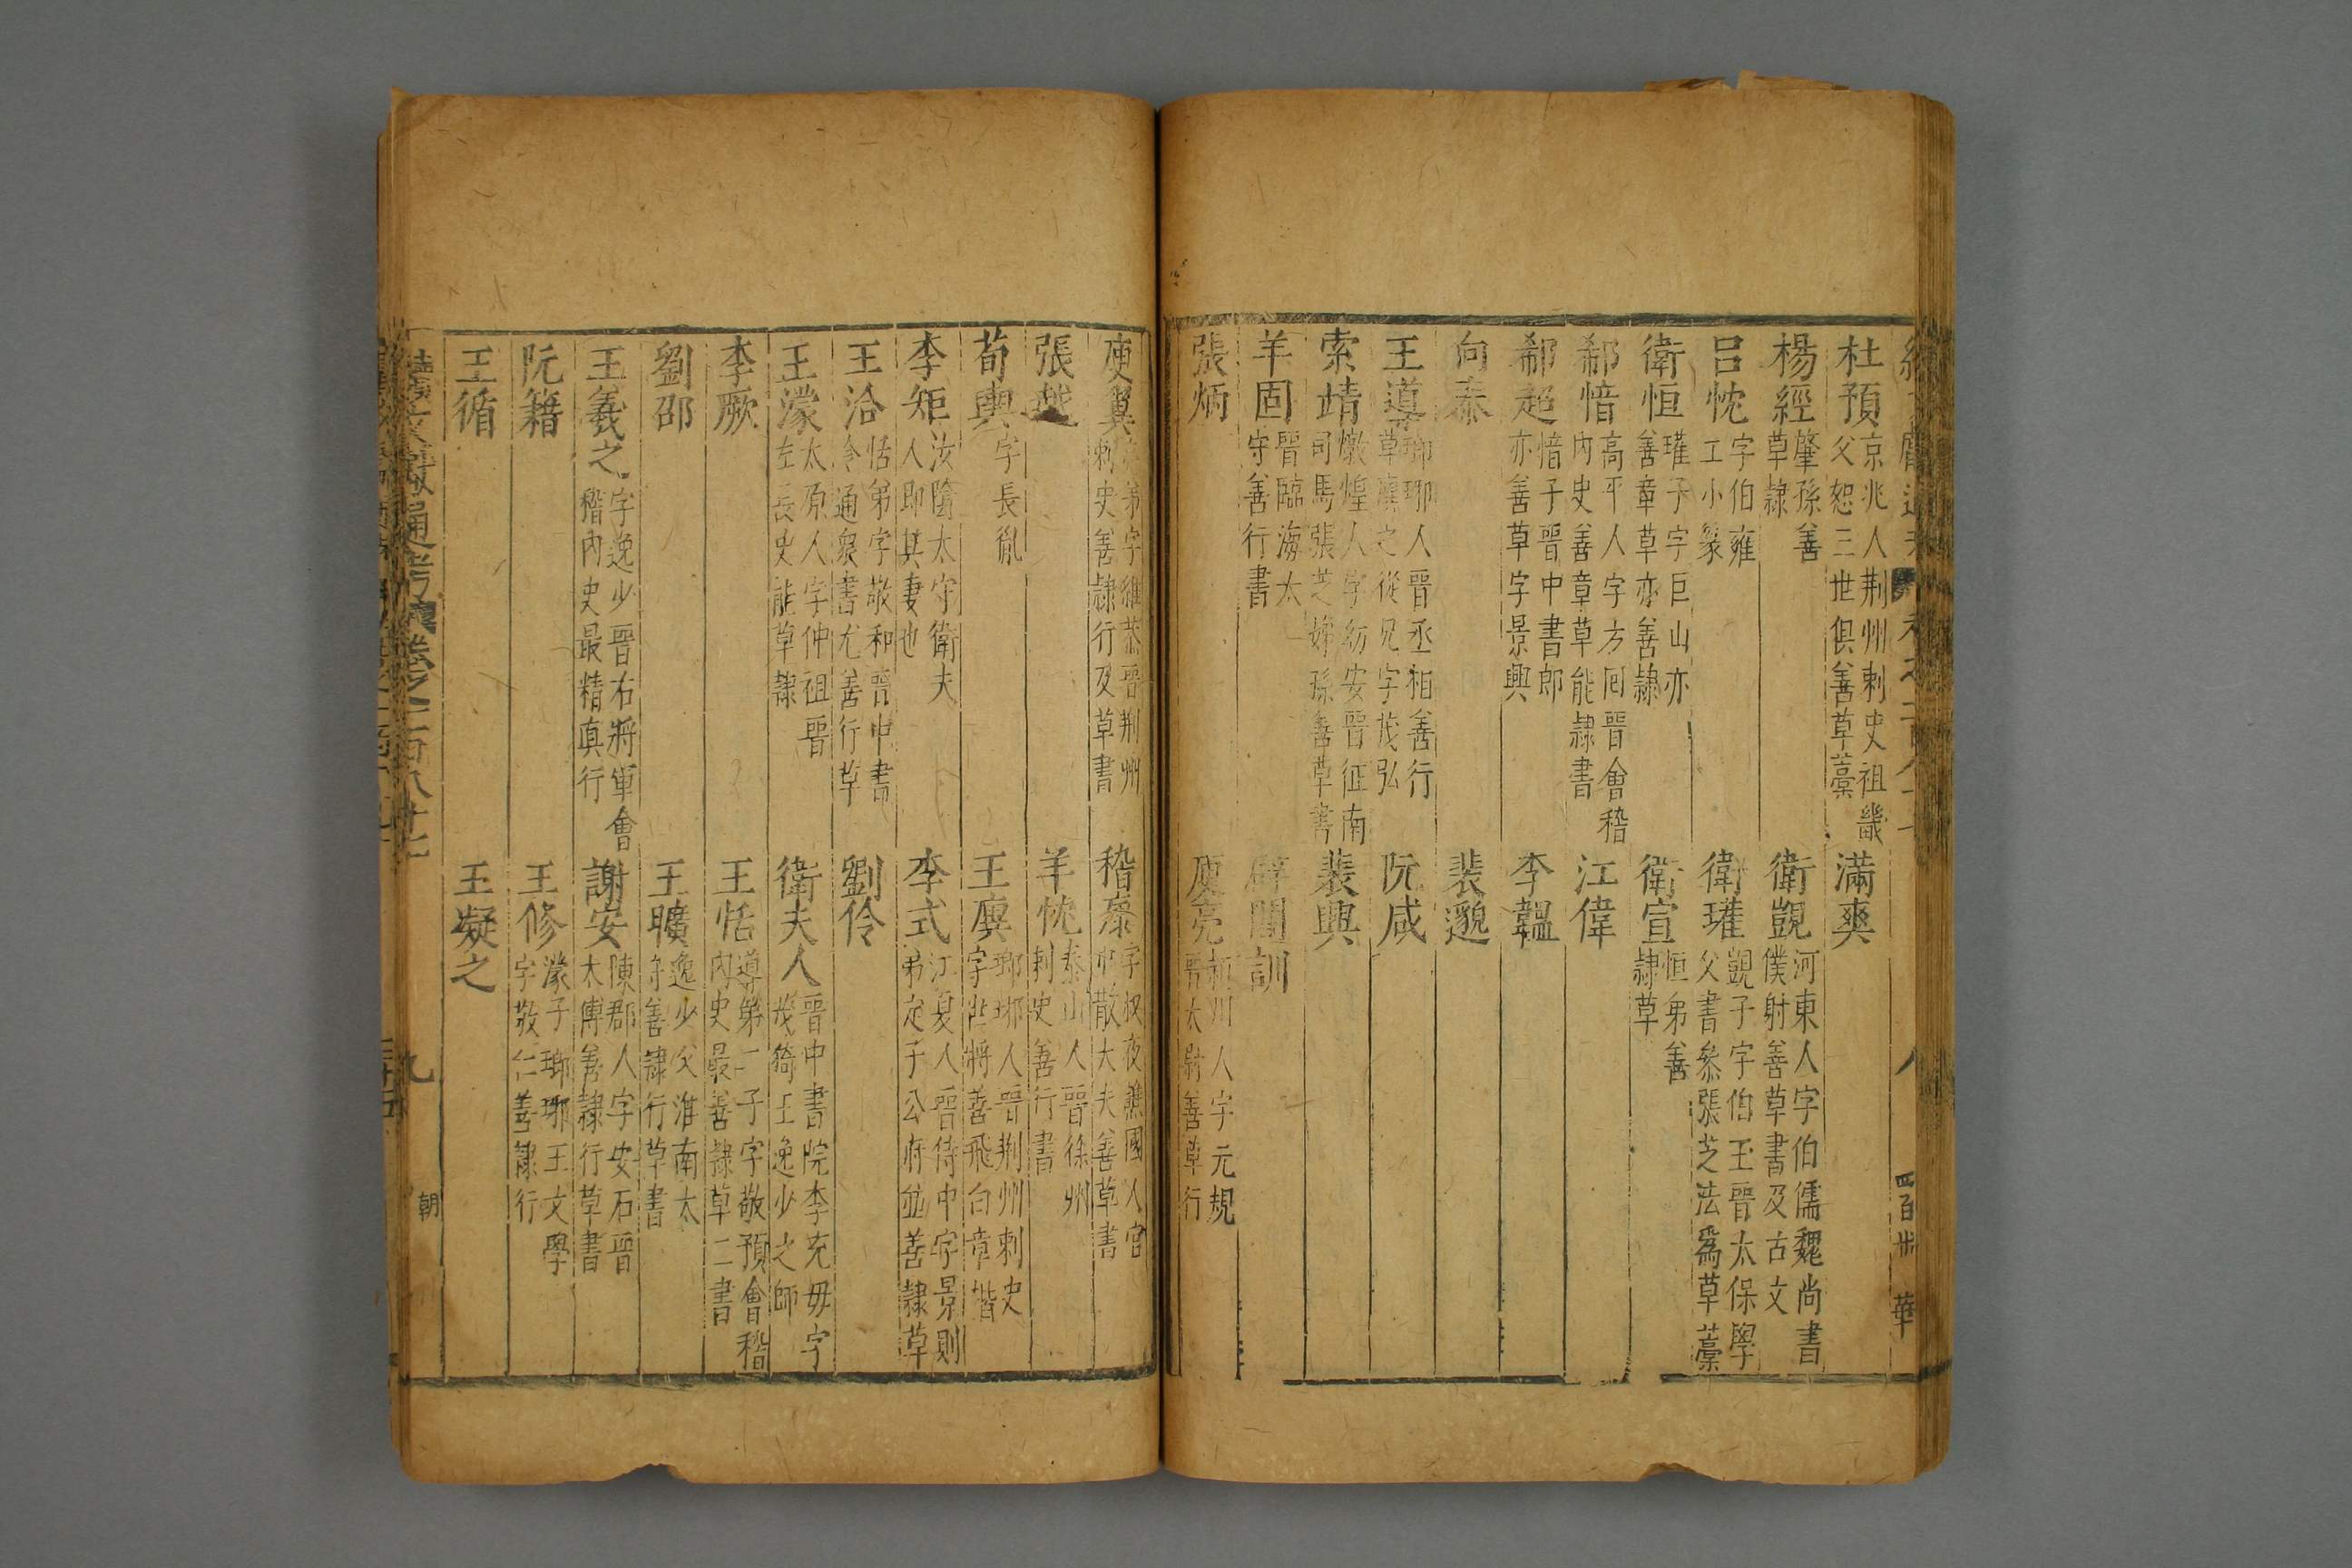 杜預 京兆人荆州刺史祖畿 父恕三世俱善草藁 滿爽
楊經 肇孫善 草隸 衛覬 河東人字伯儒魏尚書 僕射善草書及古文
呂忱 字伯雍 工小篆 衛瓘 覬子字伯玉晉太保學 父書叅張芝法爲草藁
衛恒 瓘子字巨山亦 善章草亦善隸 衛宣 恒弟善 隸草
郗愔 高平人字方囘晉會稽 内史善章草能隸書 江偉
郗超 愔子晉中書郎 亦善草字景興 李韞
向泰 裴邈
王導 瑯琊人晉丞相善行 草廙之從兄字茂弘 阮咸
索靖 燉煌人字幼安晉征南 司馬張芝姊孫善草書 裴興
羊固 晉臨海太 守善行書 闓訓
張炳 庾亮 人字元規 晉太尉善草行
庾翼 弟字稚恭晉荆州 刺史善隸行及草書 稽康 字叔夜譙國人官 中散大夫善草書
張越 羊忱 泰山人晉徐州 刺史善行書
荀輿 字長胤 王廙 瑯琊人晉荆州刺史 字世將善飛白章楷
李矩 汝陰太守衛夫 人即其妻也 李式 江夏人晉侍中字景則 弟定子公府並善隸草
王洽 恬弟字敬和晉中書 令通衆書尤善行草 劉伶
王濛 太原人字仲祖晉 左長史能草隸 衛夫人 晉中書院李充毋字 茂猗王逸少之師
李厥 王恬 導第二子字敬預會稽 内史最善隸草二書
劉邵 王曠 逸少父淮南太 守善隸行草書
王羲之 字逸少晉右將軍會 稽内史最精真行 謝安 陳郡人字安石晉 太傅善隸行草書
阮籍 王修 濛子瑯琊王文學 字敬仁善隸行
王循 王凝之
四百卅 華
九 朝